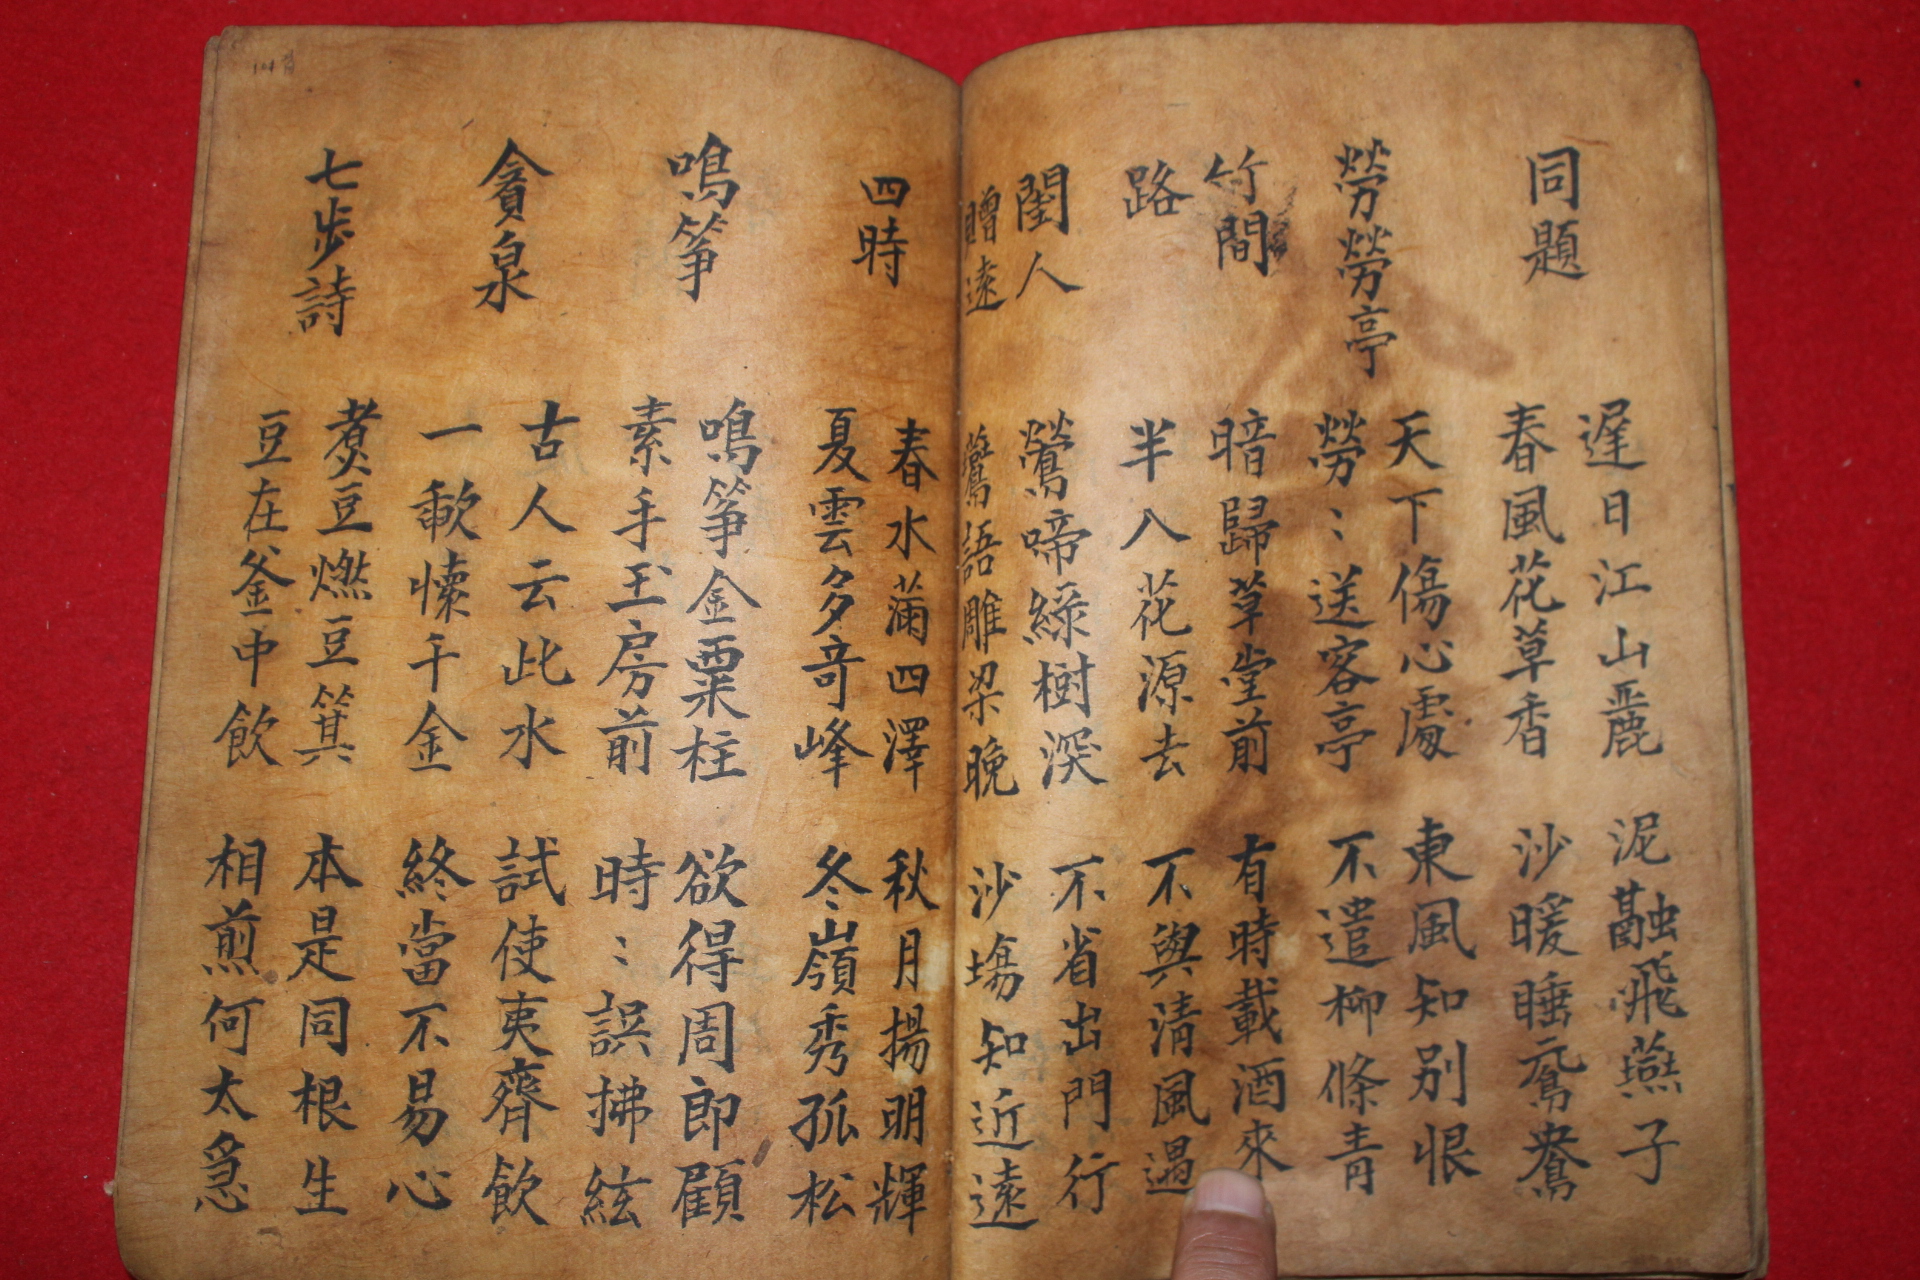 同題
遲日江山麗 泥融飛燕子
春風花草香 沙暖睡鴛鴦
勞勞亭
天下傷心處 東風知別恨
勞〻送客亭 不遣柳條青
竹間
路
暗歸草堂前 有時載酒來
半八花源去 不與清風過
閨人
贈遠
鶯啼綠樹深 不省出門行
鷰語雕梁晚 沙塲知近遠
四時
春水滿四澤 秋月揚明輝
夏雲多奇峰 冬嶺秀孤松
鳴箏
鳴箏金粟柱 欲得周郎顧
素手玉房前 時〻誤拂絃
貪泉
古人云此水 試使夷齊飲
一歃懷千金 終當不易心
七歩詩
煮豆燃豆箕 本是同根生
豆在釜中飮 相煎何太急